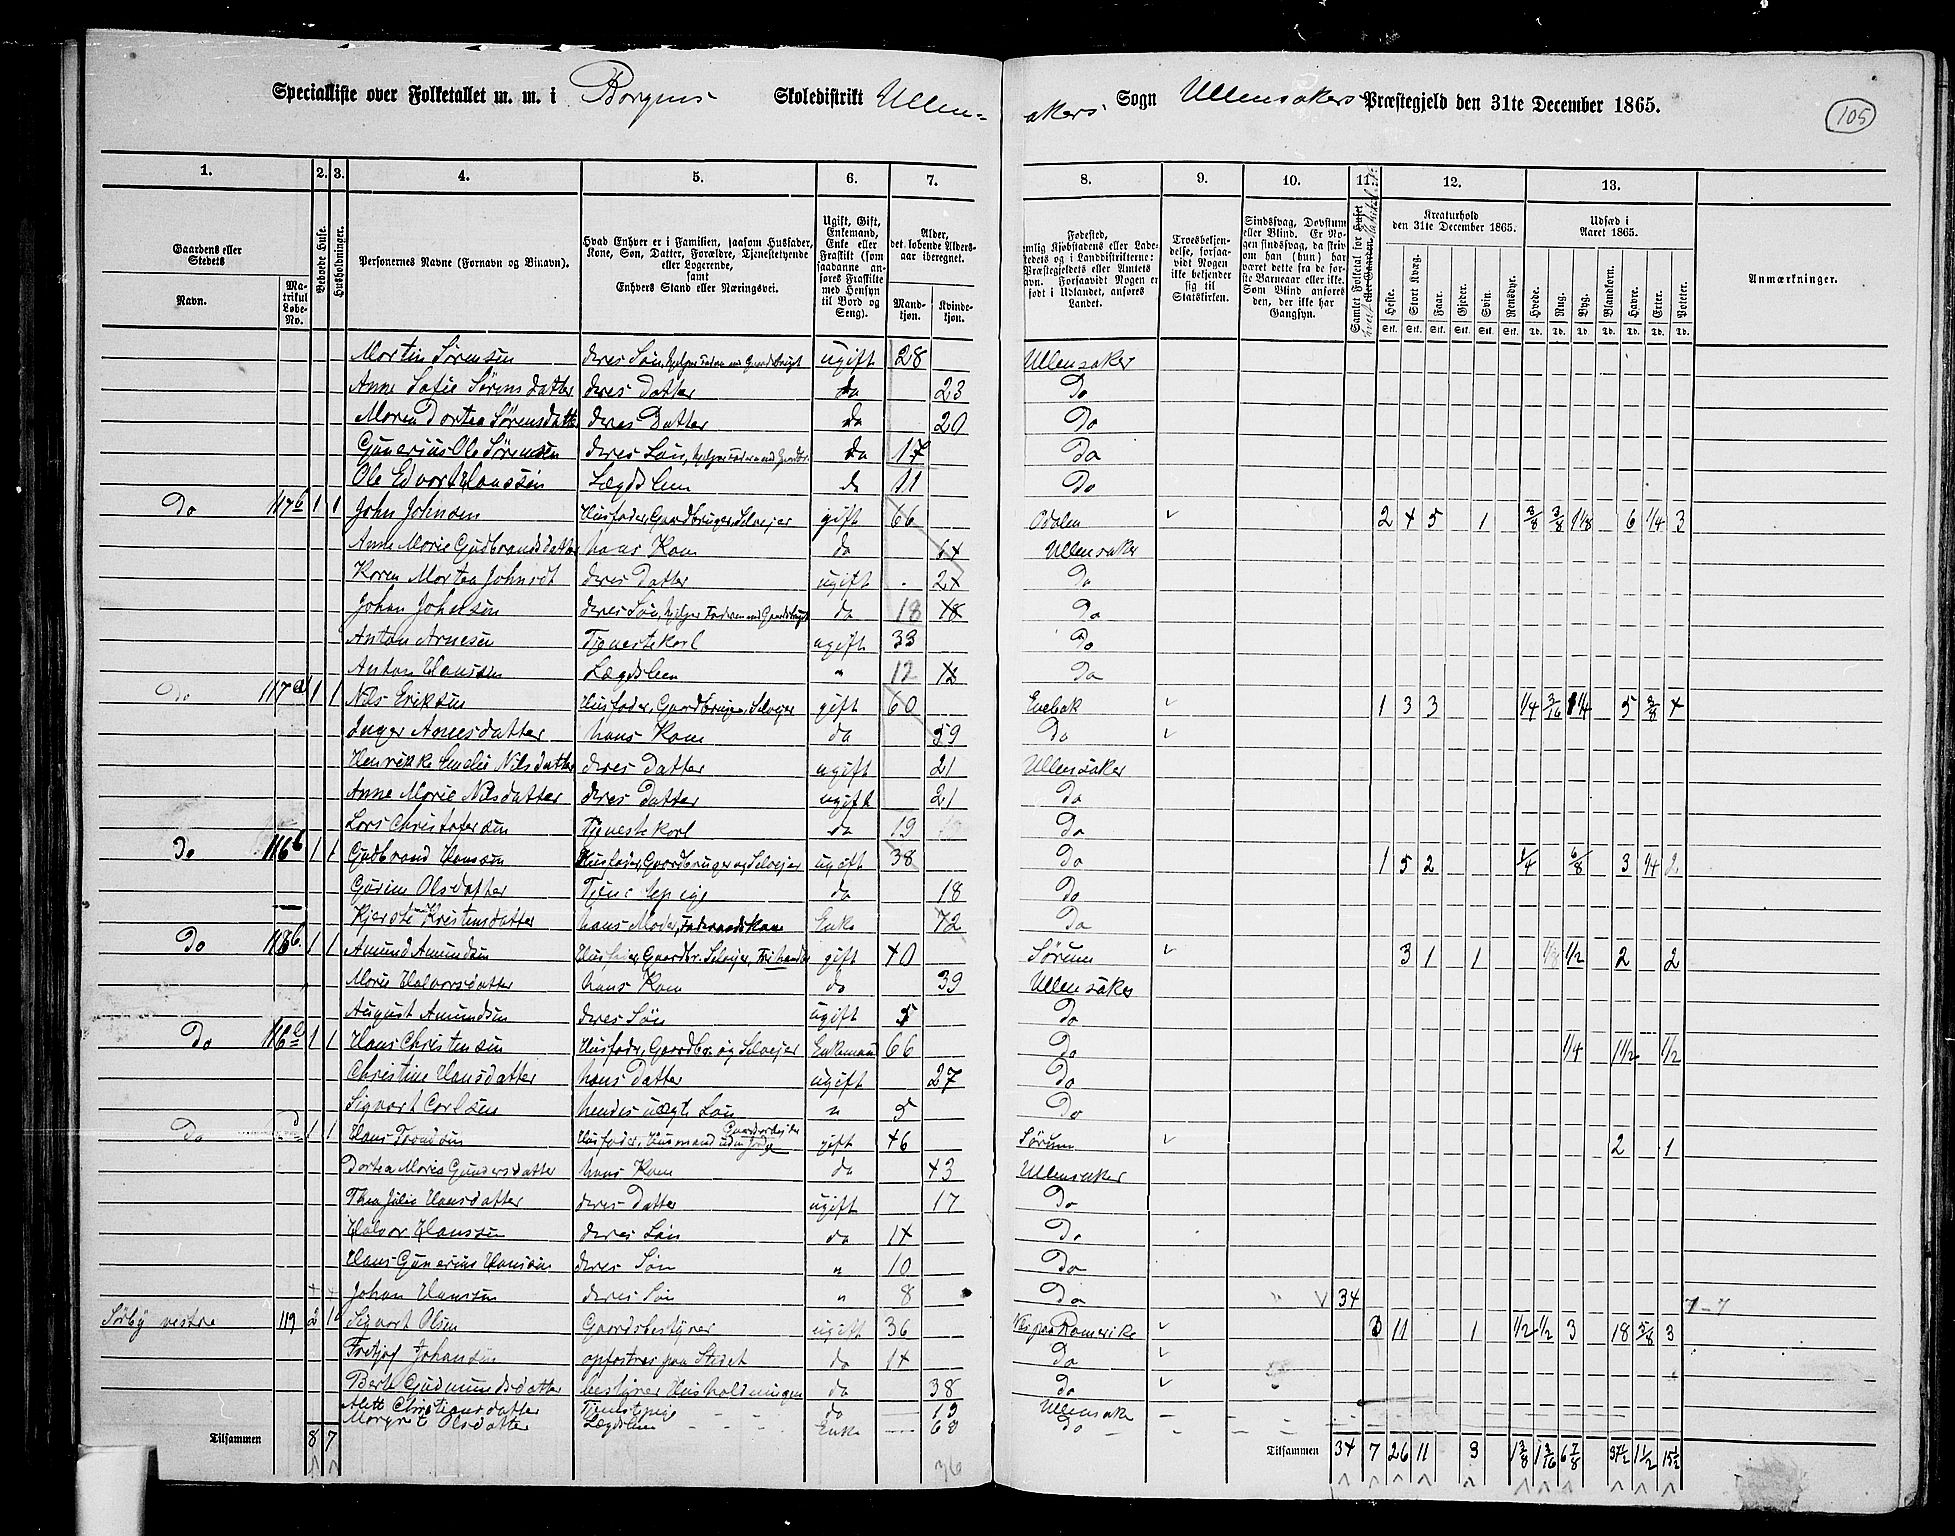 Specialliste over Folketallet m. m. i Borgens Skoledistrikt Ullen-
akers Sogn Ullensakers Præstegjeld den 31te December 1865.
105
1. 2. 3. 4. 5. 6. 7. 8. 9. 10. 11. 12. 13.
Gaardens eller Stedets
Navn.
Matrikul Løbe-No.
Beboede Huse.
Husholdninger.
Personernes Navne (Fornavn og Binavn).
Hvad Enhver er i Familien, saasom Husfader, Kone, Søn, Datter, Forældre, Tjenestetyende eller Logerende,
samt
Enhvers Stand eller Næringsvei.
Ugift, Gift, Enkemand, Enke eller Fraskilt (som saadanne anføres Fraskilte med Hensyn til Bord og Seng).
Alder, det løbende Aldersaar iberegnet.
Mandkjøn.
Kvindekjøn.
Fødested,
Troesbekjendelse, forsaavidt Nogen ikke bekjender sig til Statskirken.
Sindssvag, Døvstum eller Blind. Er Nogen sindssvag, da skrives om han (hun) har været dette fra de første Barneaar eller ikke. Som Blind anføres den, der ikke har Gangsyn.
Kreaturhold
den 31te December 1865.
Heste. Stort Kvæg. Faar. Gjeder. Svin. Rensdyr.
Udsæd i Aaret 1865.
Hvede. Rug. Byg. Blandkorn. Havre. Erter. Poteter.
Anmærkninger.
Martin Sørensen deres Søn, hjelper Faderen med Gaardsbruget ugift 28 Ullensaker
Anne Sofie Sørensdatter deres Datter do 23 Do
Maren Dortea Sørensdatt deres Datter do 20 Do
Gunerius Ole Sørensen deres Søn, hjelper Faderen med Gaardbr. do 17 Do
Ole Edvart Hanssen Lægdslem do 11 Do
Do 117b 1 1 John Johnsen Husfader, Gaardbruger, Selveier gift 66 Odalen 2 4 5 1 3/8 3/8 1 1/8 6 1/4 3
Anne Marie Gudbrandsdatter hans Kone do 64 Ullensaker
Karen Martea Johnsdt deres Datter ugift 24 Do
Johan Johnsen deres Søn, hjelper Faderen med Gaardsbruget do 18 Do
Anton Arnesen Tjenestekarl ugift 33 Do
Anton Hansen Lægdslem " 12 Do
Do 117a 1 1 Nils Eriksen Husfader, Gaardbruger, Selveier gift 60 Enebak 1 3 3 1/4 3/16 1 1/4 5 3/8 4
Inger Arnesdatter hans Kone do 59 Do
Henrikke Emelie Nilsdatter deres Datter ugift 21 Ullensaker
Anne Marie Nilsdatter deres Datter ugift 21 Do
Lars Christofersen Tjenestekarl do 19 Do
Do 116b 1 1 Gudbrand Hansen Husfader, Gaardbruger og Selveier ugift 38 Do 1 5 2 1/4 6/8 3 1/4 2
Gurine Olsdatter Tjenestepige do 18 Do
Kjersti Kristensdatter hans Moder, Føderaadskone Enke 72 Do
Do 118b 1 1 Amund Amundsen Husfader, Gaardbr. Selveier, gift 40 Sørum 3 1 1 1/2 2 2
Marie Halvorsdatter hans Kone do 39 Ullensaker
August Amundsen deres Søn ugift 5 Do
Do 116 1 1 Hans Christensen Husfader, Gaardbr. og Selveier Enkemand 66 Do 1/4 1 1/2 1/2
Christine Hansdatter hans Datter ugift 27 Do
Sigvart Carlsen hendes uægte Søn " 5 Do
Do d 1 1 Hans Trondsen Husfader, Husmand uden Jord Gaardarbeider gift 46 Sørum 2 1
Dortea Marie Gundersdatter hans Kone do 43 Ullensaker
Thea Julie Hansdatter deres Datter ugift 17 Do
Halvor Hanssen deres Søn do 14 Do
Hans Gunerius Hansen deres Søn " 10 Do
Johan Hanssen deres Søn " 8 Do 34 7-7
Sørby vestre 119 2 1 Sigvart Olsen Gaardsbestyrer ugift 36 Næs paa Romerike 3 11 1 1/2 1/2 3 18 5/8 3
Fretjof Johansen opfostres paa Stedet do 14 Do
Berte Gudmundsdatter bestyrer Husholdningen do 38 Do
Alette Christiansdatter Tjenestepige do 19 Ullensaker
Margret Olsdatter Lægdslem Enke 68 Do
Tilsammen 8 7
36
Tilsammen 34 7 26 11 3 1 3/8 1 3/16 6 7/8 37 1/2 1 1/2 15 1/2